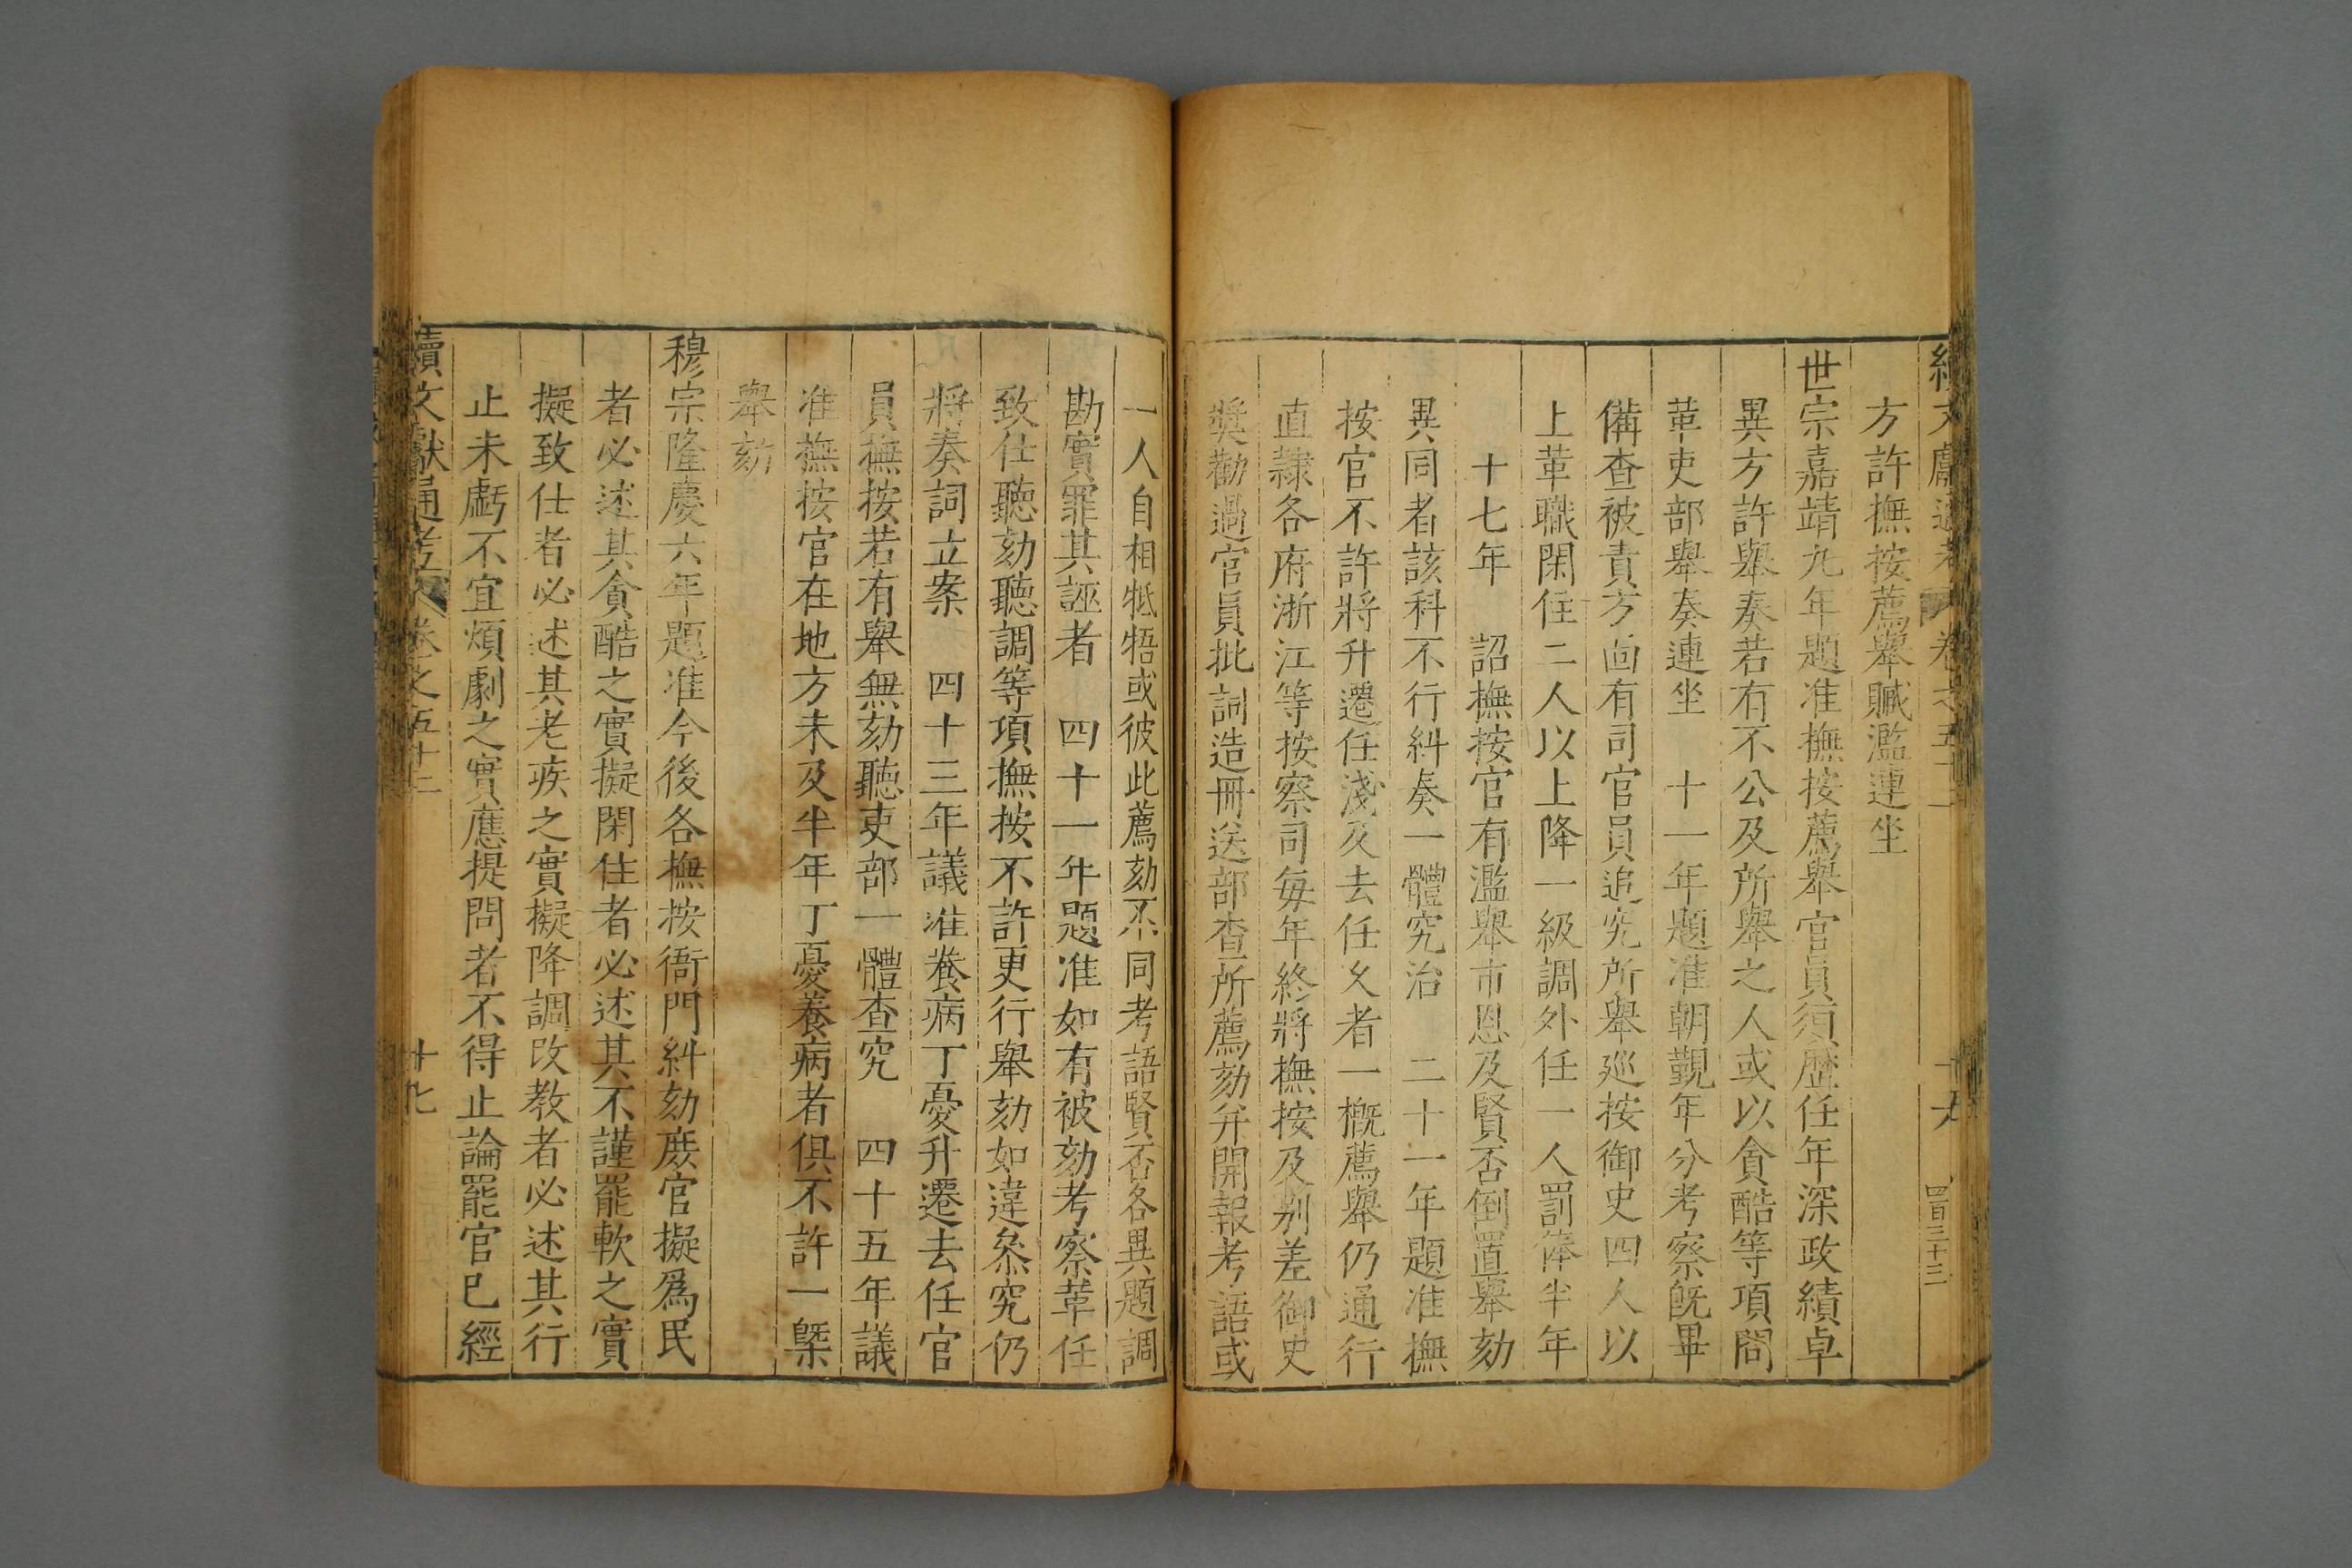 續文獻通考 卷之五十二 十八 四百三十三
方許撫按薦舉贓濫連坐
世宗嘉靖九年題准撫按薦舉官員須歷任年深政績卓
異方許舉奏若有不公及所舉之人或以貪酷等項問
革吏部舉奏連坐 十一年題准朝覲年分考察旣畢
備查被責方面有司官員追究所舉巡按御史四人以
上革職閑住二人以上降一級調外任一人罰俸半年
十七年 詔撫按官有濫舉市恩及賢否倒置舉劾
異同者該科不行糾奏一體究治 二十一年題准撫
按官不許將升遷任淺及去任久者一概薦舉仍通行
直隷各府浙江等按察司每年終將撫按及別差御史
奬勸過官員批詞造冊送部查所薦劾并開報考語或
一人自相牴牾或彼此薦劾不同考語賢否各異題調
勘實罪其誣者 四十一年題准如有被劾考察革任
致仕聽劾聽調等項撫按不許更行舉劾如違叅究仍
將奏詞立案 四十三年議准養病丁憂升遷去任官
員撫按若有舉無劾聽吏部一體查究 四十五年議
准撫按官在地方未及半年丁憂養病者俱不許一槩
舉劾
穆宗隆慶六年題准今後各撫按衙門糾劾庶官擬爲民
者必述其貪酷之實擬閑住者必述其不謹罷軟之實
擬致仕者必述其老疾之實擬降調改教者必述其行
止未虧不宜煩劇之實應提問者不得止論罷官已經
續文獻通考 卷之五十二 十九